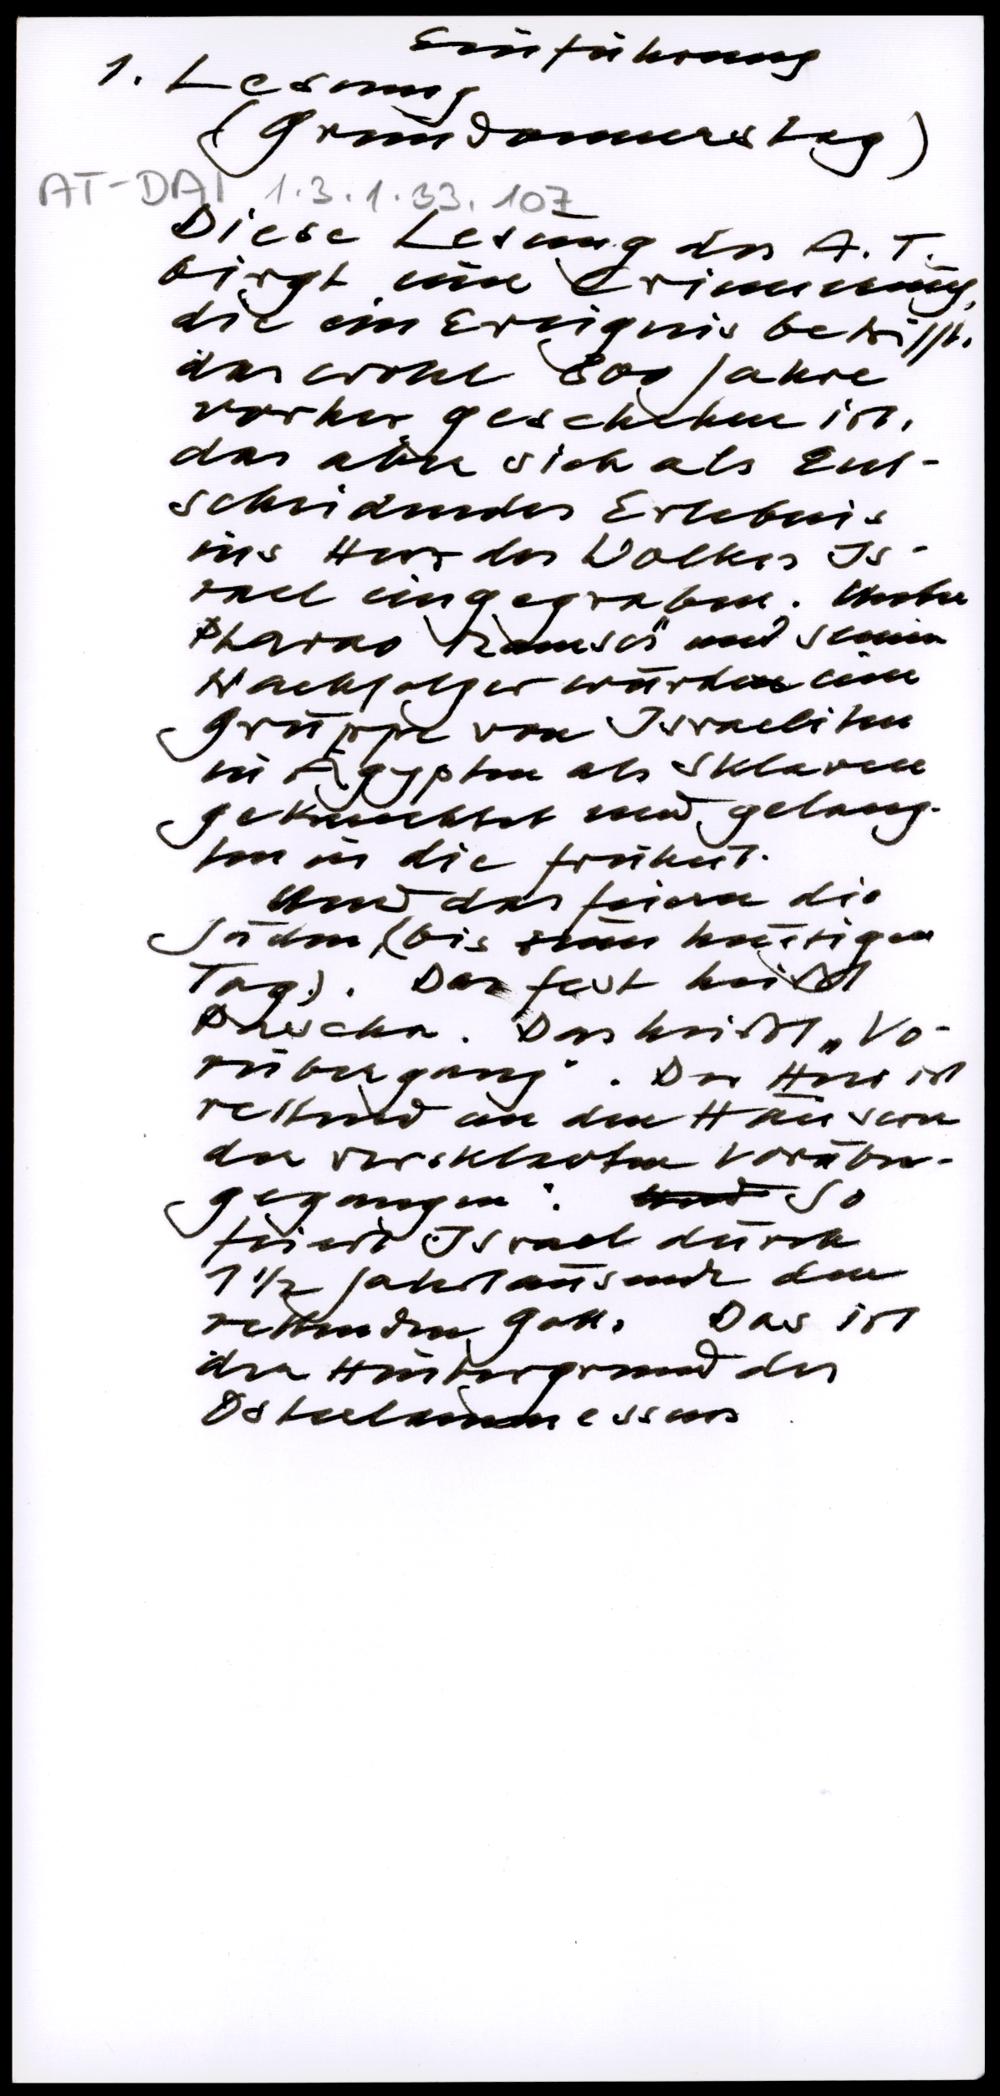 Einführung
1. Lesung
(Gründonnerstag)
AT-DAI 1.3.1.33.107
Diese Lesung des A.T.
birgt eine Erinnerung,
die ein Ereignis betrifft,
das wohl 800 Jahre
vorher geschehen ist,
das aber sich als Ent-
scheidendes Erlebnis
ins Herz des Volkes Is-
rael eingegraben. Unter
Pharao Ramses II und seinem
Nachfolger wurden eine
Gruppe von Israeliten
in Ägypten als Sklaven
geknechtet und gelang-
ten in die Freiheit.
Und das feiern die
Juden, (bis zum heutigen
Tag). Das Fest heißt
Pascha. Das heißt „Vo-
rübergang". Der Herr ist
rettend an den Häusern
der versklavten vorüber-
gegangen". Und So
feiert Israel durch
1 1/2 Jahrtausende den
rettenden Gott. Das ist
der Hintergrund des
Osterlammessens